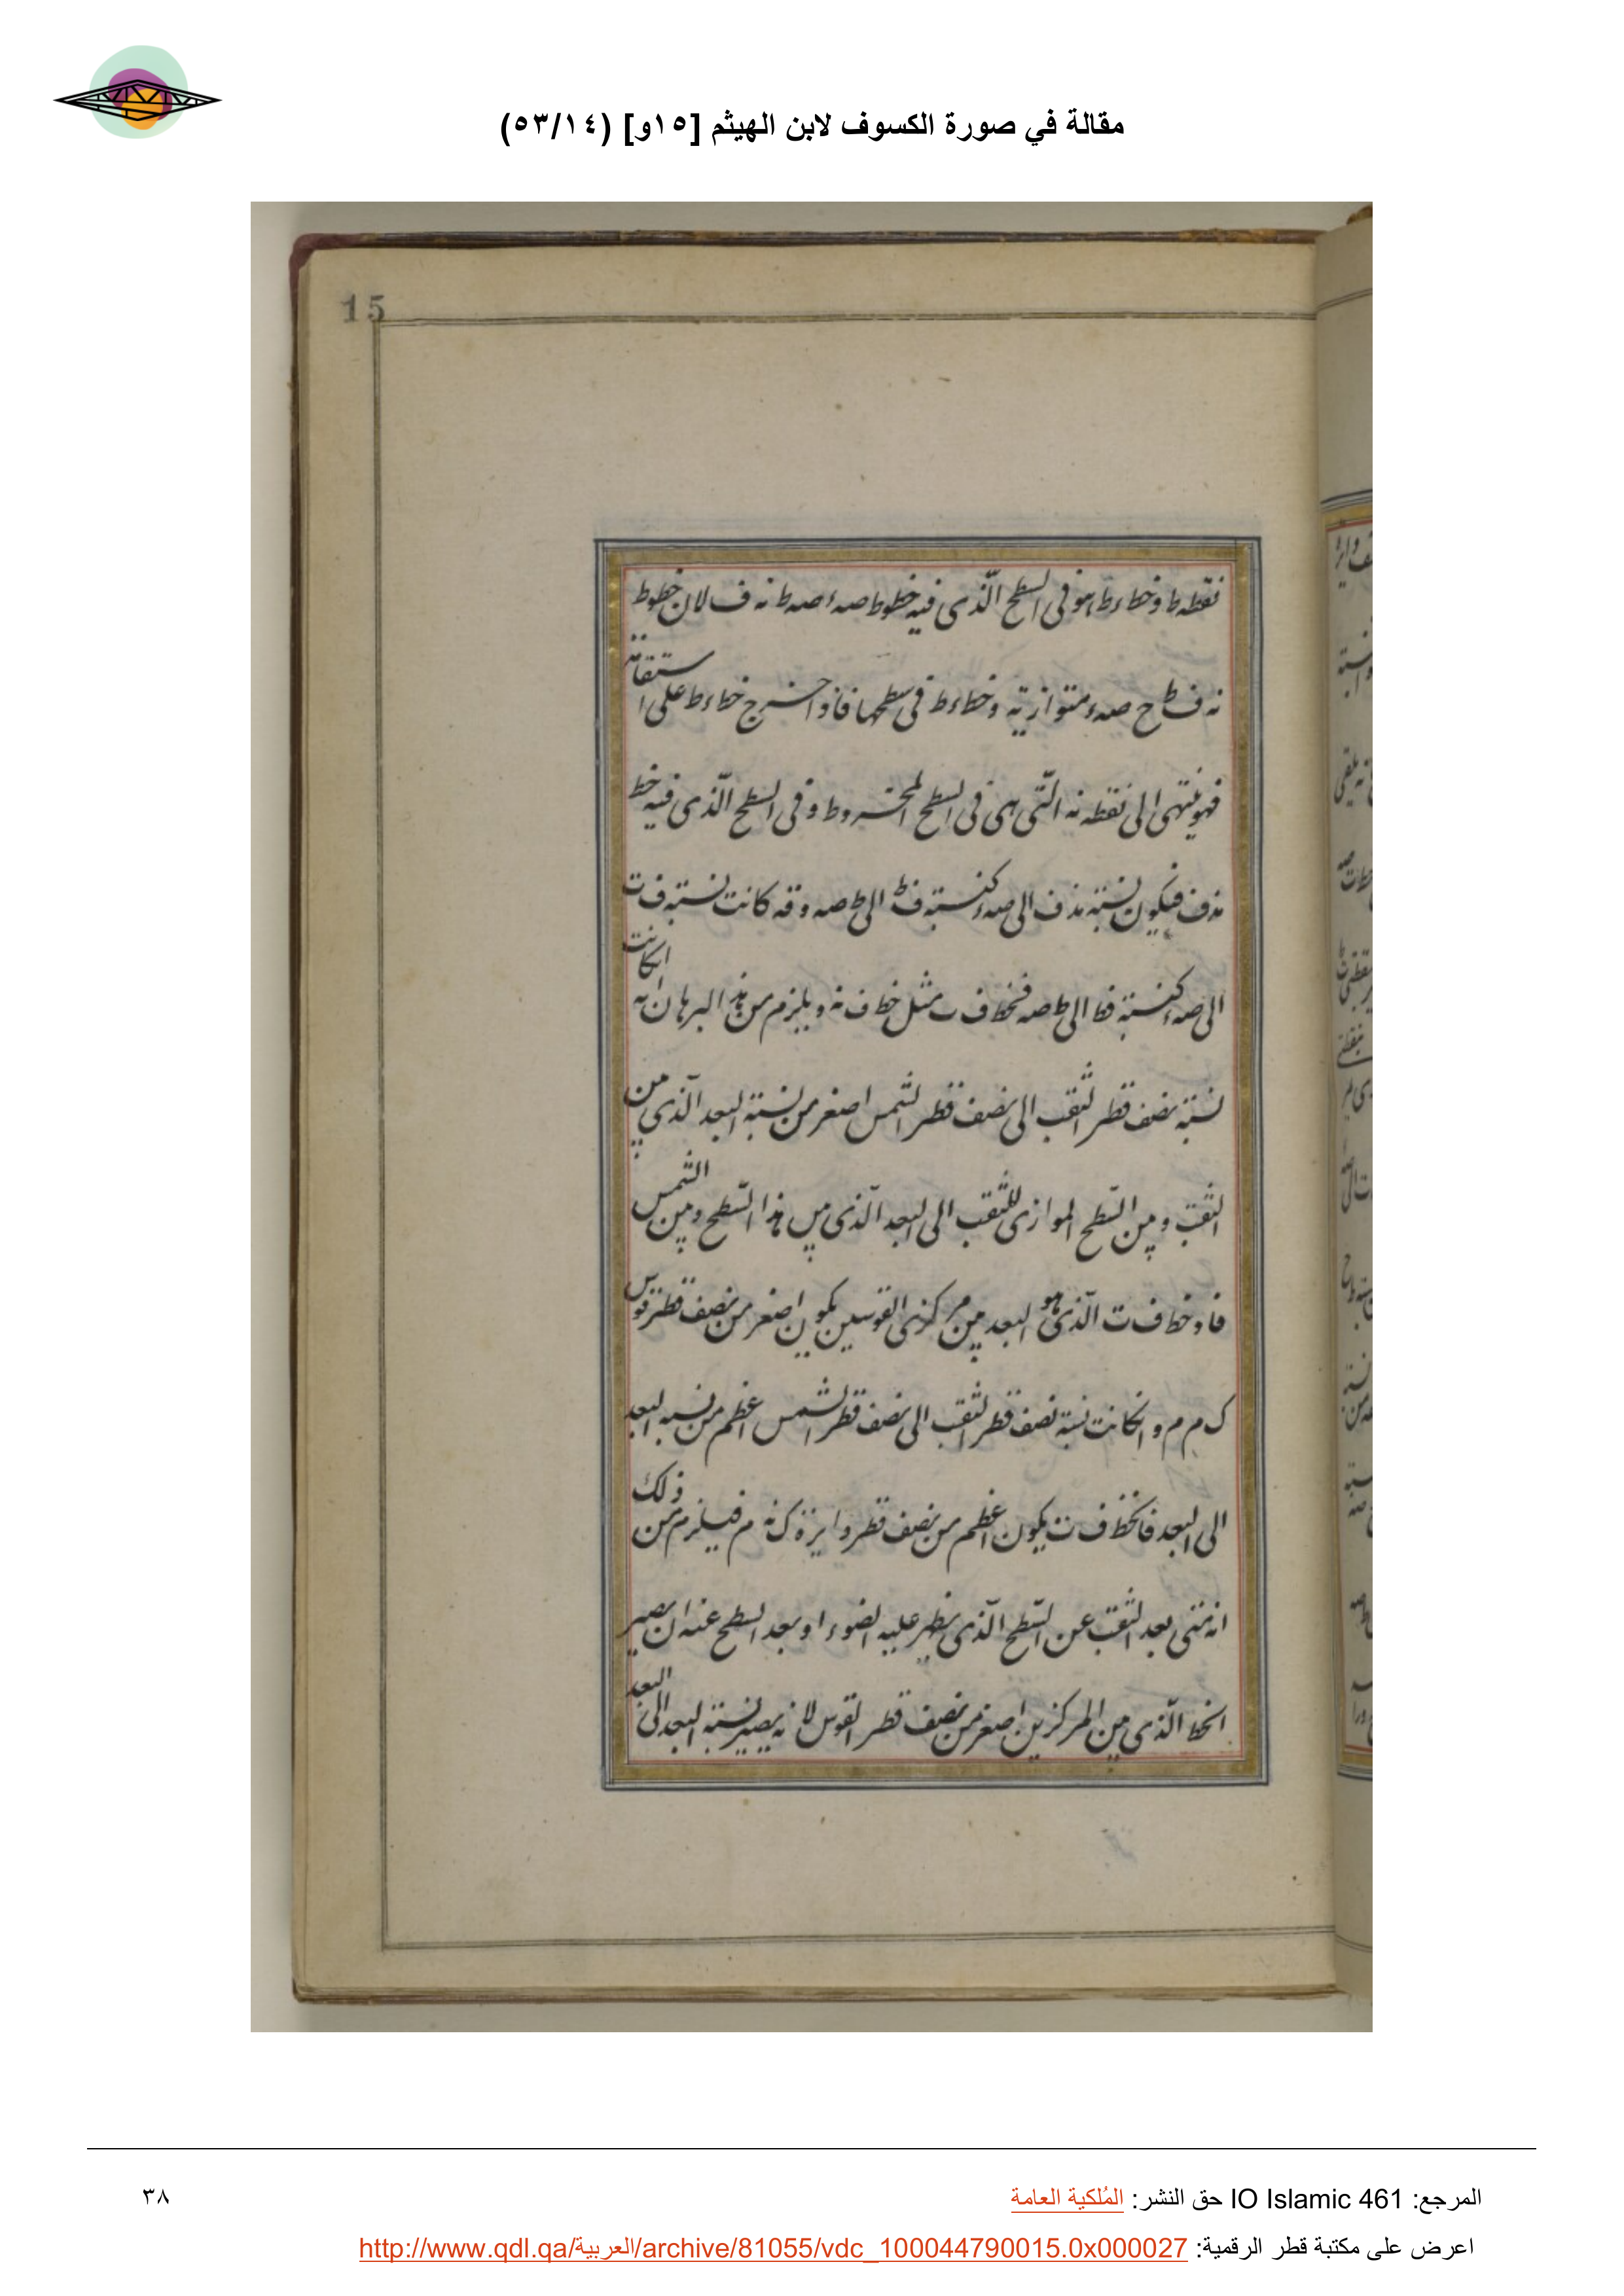 مقالة في صورة الكسوف لابن الهيثم [١٥و] (٥٣/١٤)
15
نقطه ط وخط ءط هو فى السطح الّذى فيه خطوط صهء صه ط نه ف لان خطوط
نه ف ط ح صهء متوازية وخط ءط فى سطحها فاذا خرج خط ءط على استقامته
فهو ينتهى الى نقطه نه الّتى هى فى السطح المخروط وفى السطح الّذى فيه خط
نه ف فيكون نسبته نه ف الى صهء كنسبته ف ط الى ط صه وقد كانت نسبته ف ت
الى صهء كنسبته ف ط الى ط صه فخط ف ت مثل خط ف نه ويلزم من هذا البرهان انه اںكانت
نسبته نصف قطر الثقب الى نصف قطر الشمس اصغر من نسبته البعد الّذى بين
الثقب وبين السّطح الموازى للثقب الى البعد الّذى بين هذا السّطح وبين الشمس
فاں خط ف ت الّذى هو البعد بين مركزى القوسين يكون اصغر من نصف قطر قوس
ك م م وانكانت نسبة نصف قطر الثقب الى نصف قطر الشمس اعظم من نسبه البعد
الى البعد فانخط ف ت يكون اعظم من نصف قطر دايرة ك نه م فيلزم من ذلك
انه متى بعد الثقب عن السّطح الّذى يظهر عليه الضوء او بعد السطح عنه ان يصير
الخط الّذى بين المركزين اصغر من نصف قطر القوس لانه يصير نسبته البعد الى البعد
المرجع: IO Islamic 461 حق النشر: المُلكية العامة
٣٨
اعرض على مكتبة قطر الرقمية: http://www.qdl.qa/العربية/archive/81055/vdc_100044790015.0x000027